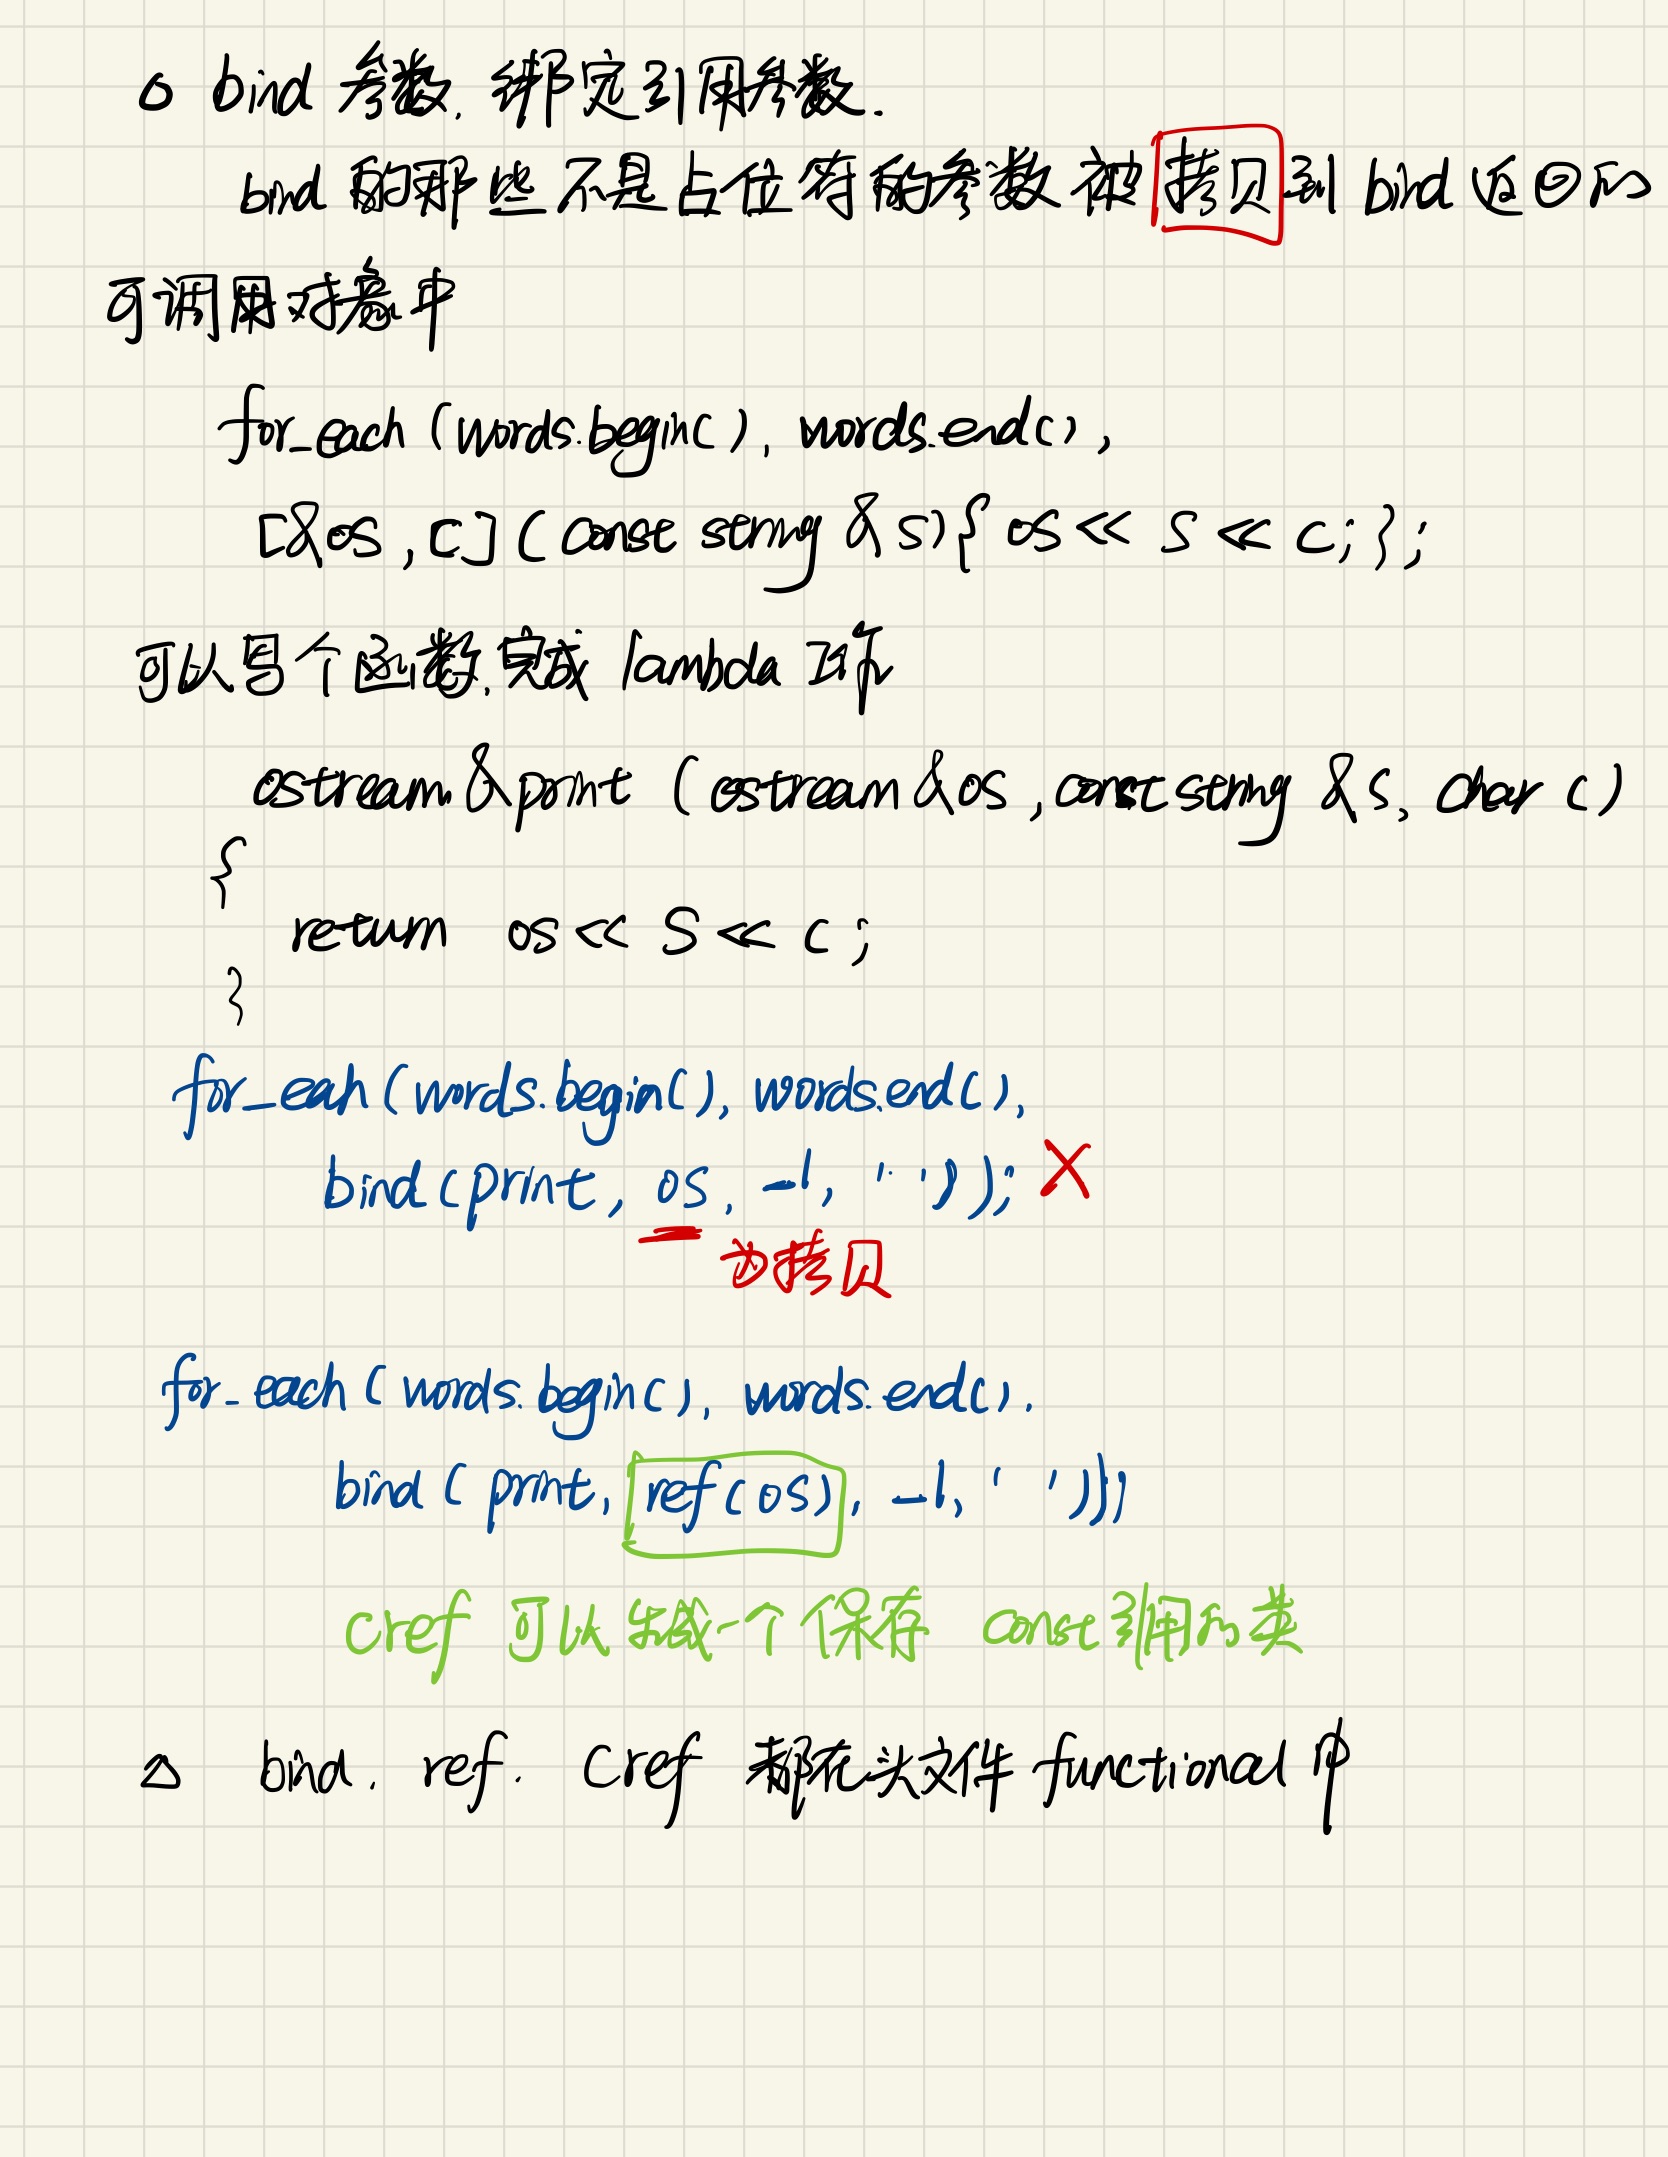 △ bind 参数, 绑定引用参数.
bind 的那些不是占位符的参数被拷贝到 bind 返回的
可调用对象中
for_each (words.begin(), words.end(),
[&os, c](const string &s){ os << s << c; };
可以写个函数, 完成 lambda 工作
ostream &print (ostream &os, const string &s, char c)
{
return os << s << c;
}
for_eah (words.begin(), words.end(),
bind (print, os, _1, ' '));  X
为拷贝
for_each (words.begin(), words.end(),
bind (print, ref(os), _1, ' '));
cref 可以生成一个保存 const 引用的类
△ bind. ref. cref 都在头文件 functional 中